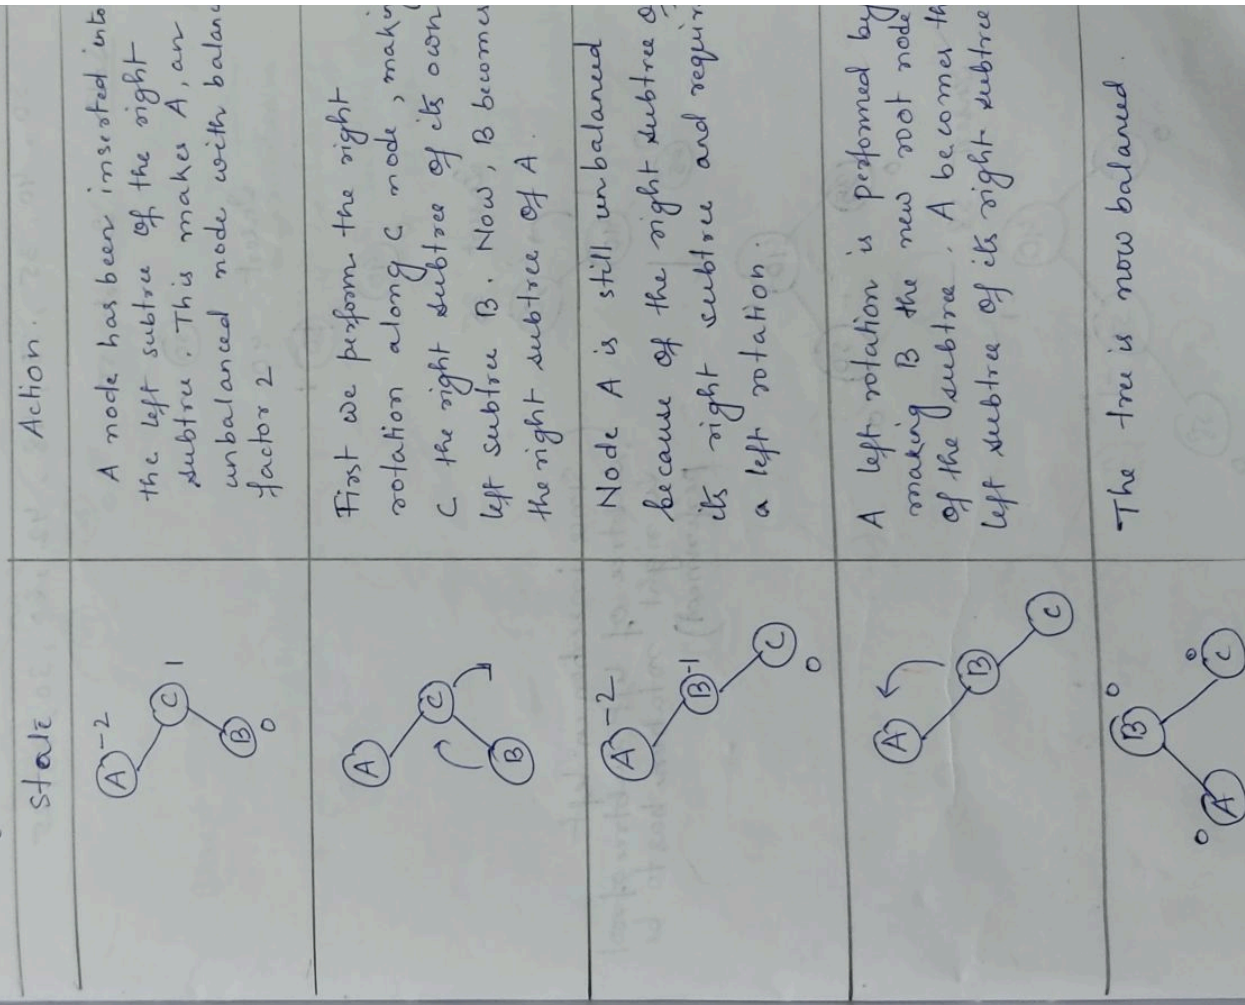 State
Action.
A -2
C 1
B 0
A node has been inserted into
the left subtree of the right
subtree. This makes A, an
unbalanced node with balanc
factor 2
A
C
B
First we perform the right
rotation along C node, makin
C the right subtree of its own
left subtree B. Now, B becomes
the right subtree of A.
A -2
B -1
C 0
Node A is still unbalanced
because of the right subtree of
its right subtree and requir
a left rotation.
A
B
C
A left rotation is performed by
making B the new root node
of the subtree. A becomes th
left subtree of its right subtree
B 0
A 0
C 0
The tree is now balanced.